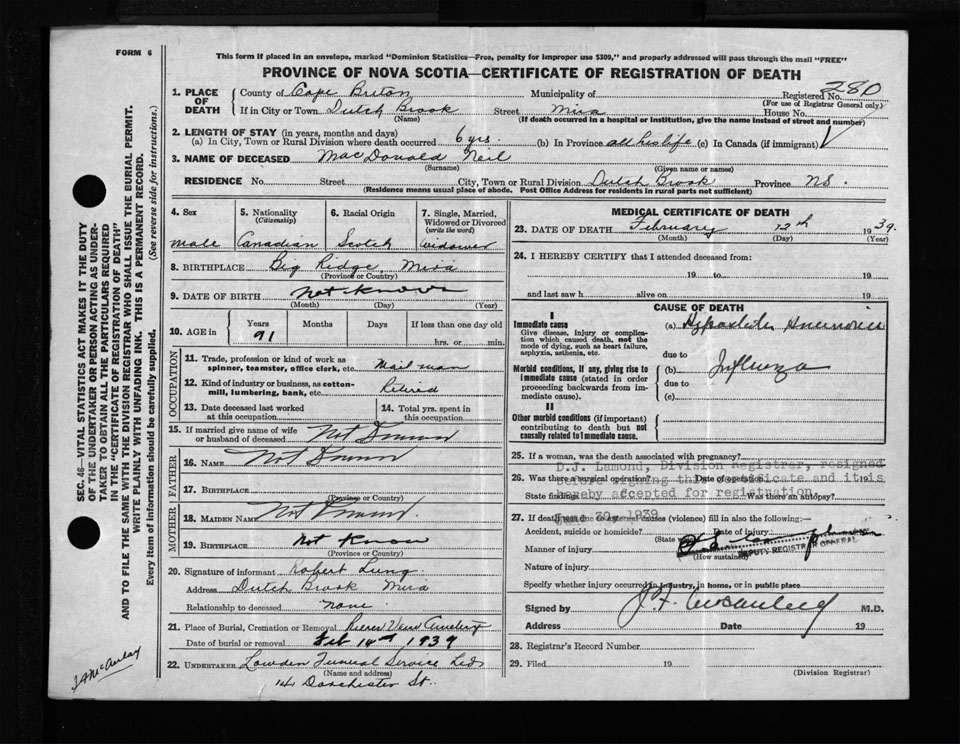 FORM 6
This form if placed in an envelope, marked "Dominion Statistics—Free, penalty for improper use $300," and properly addressed will pass through the mail "FREE"
PROVINCE OF NOVA SCOTIA—CERTIFICATE OF REGISTRATION OF DEATH
1. PLACE OF DEATH County of Cape Breton Municipality of Registered No. 280
(For use of Registrar General only)
If in City or Town Dutch Brook Street Mira House No.
(Name) (If death occurred in a hospital or institution, give the name instead of street and number)
2. LENGTH OF STAY (in years, months and days)
(a) In City, Town or Rural Division where death occurred 6 yrs. (b) In Province all his life (c) In Canada (if immigrant)
3. NAME OF DECEASED MacDonald Neil
(Surname) (Given name or names)
RESIDENCE No. Street City, Town or Rural Division Dutch Brook Province NS.
(Residence means usual place of abode. Post Office Address for residents in rural parts not sufficient)
4. Sex 5. Nationality (Citizenship) 6. Racial Origin 7. Single, Married, Widowed or Divorced (write the word)
male Canadian Scotch widower
8. BIRTHPLACE Big Ridge Mira
(Province or Country)
9. DATE OF BIRTH not known
(Month) (Day) (Year)
10. AGE in Years Months Days If less than one day old
91 hrs. or min.
OCCUPATION
11. Trade, profession or kind of work as spinner, teamster, office clerk, etc. Mail man
12. Kind of industry or business, as cotton-mill, lumbering, bank, etc. Retired
13. Date deceased last worked at this occupation 14. Total yrs. spent in this occupation
15. If married give name of wife or husband of deceased Not Known
FATHER
16. NAME Not Known
17. BIRTHPLACE
(Province or Country)
MOTHER
18. MAIDEN NAME Not Known
19. BIRTHPLACE Not Know
(Province or Country)
20. Signature of informant Robert Long
Address Dutch Brook Mira
Relationship to deceased none
21. Place of Burial, Cremation or Removal
Date of burial or removal Feb 14th 1939
22. UNDERTAKER Lowden Funeral Service Ltd
(Name and address)
14 Dorchester St.
MEDICAL CERTIFICATE OF DEATH
23. DATE OF DEATH February 12th 1939.
(Month) (Day) (Year)
24. I HEREBY CERTIFY that I attended deceased from:
19 to 19
and last saw h alive on 19
CAUSE OF DEATH
I
Immediate cause (a)
Give disease, injury or complication which caused death, not the mode of dying, such as heart failure, asphyxia, asthenia, etc.
due to
Morbid conditions, if any, giving rise to immediate cause (stated in order proceeding backwards from immediate cause). (b) Influenza
due to
(c)
II
Other morbid conditions (if important) contributing to death but not causally related to immediate cause.
25. If a woman, was the death associated with pregnancy?
D.J. Lamond, Division Registrar, resigned
26. Was there a surgical operation? Date of operation 193
before signing this certificate and it is
State findings Was there an autopsy?
hereby accepted for registration
27. If death was due to external causes (violence) fill in also the following:—
June 30, 1939
Accident, suicide or homicide? Date of injury
(State which)
Manner of injury
(How sustained)
DEPUTY REGISTRAR GENERAL
Nature of injury
Specify whether injury occurred in industry, in home, or in public place
Signed by M.D.
Address Date 19
28. Registrar's Record Number
29. Filed 19
(Division Registrar)
SEC. 46—VITAL STATISTICS ACT MAKES IT THE DUTY
OF THE UNDERTAKER OR PERSON ACTING AS UNDER-
TAKER TO OBTAIN ALL THE PARTICULARS REQUIRED
IN THE "CERTIFICATE OF REGISTRATION OF DEATH"
AND TO FILE THE SAME WITH THE DIVISION REGISTRAR WHO SHALL ISSUE THE BURIAL PERMIT.
WRITE PLAINLY WITH UNFADING INK. THIS IS A PERMANENT RECORD.
Every item of information should be carefully supplied. (See reverse side for instructions.)